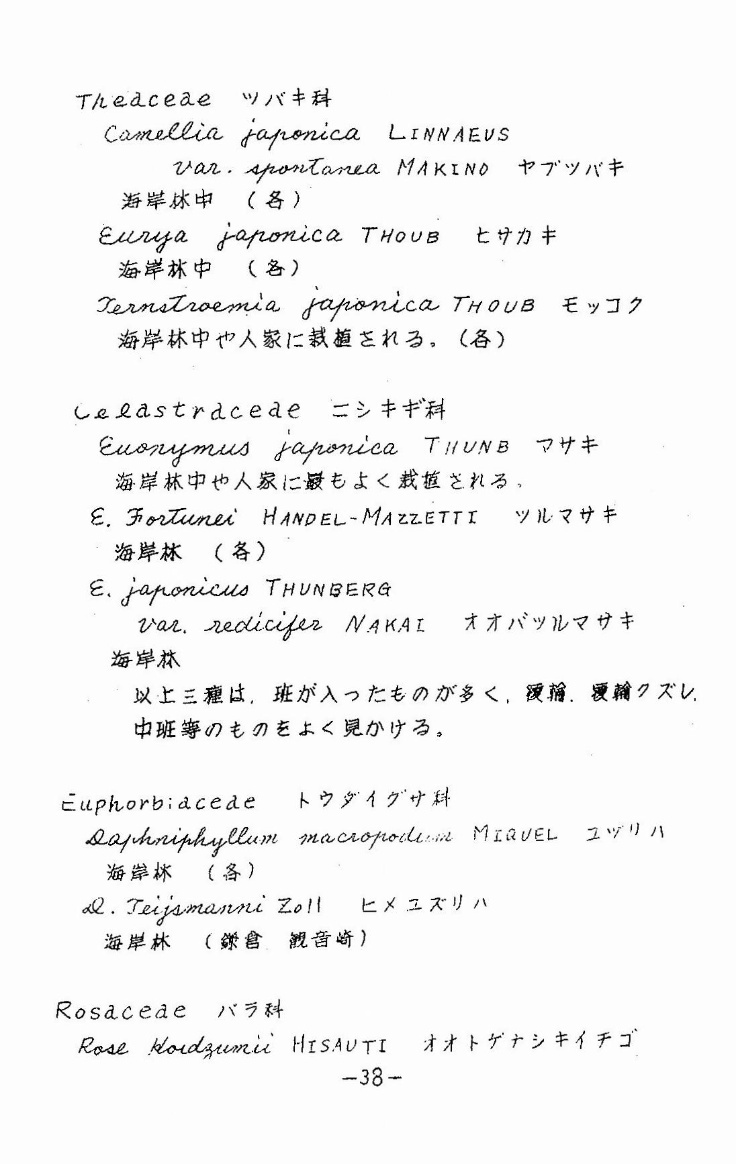 Theaceae ツバキ科
Camellia japonica LINNAEUS
var. spontanea MAKINO ヤブツバキ
海岸林中 (各)
Eurya japonica THOUB ヒサカキ
海岸林中 (各)
Ternstroemia japonica THOUB モッコク
海岸林中や人家に栽植される。(各)
Celastraceae ニシキギ科
Euonymus japonica THUNB マサキ
海岸林中や人家に最もよく栽植される、
E. Fortunei HANDEL-MAZZETTI ツルマサキ
海岸林 (各)
E. japonicus THUNBERG
var. redicifer NAKAI オオバツルマサキ
海岸林
以上三種は、班が入ったものが多く、覆輪、覆輪クズレ、
中班等のものをよく見かける。
Euphorbiaceae トウダイグサ科
Daphniphyllum macropodum MIQUEL ユヅリハ
海岸林 (各)
D. Teijsmanni Zoll ヒメユズリハ
海岸林 (鎌倉 観音崎)
Rosaceae バラ科
Rose Koidzumii HISAUTI オオトゲナシキイチゴ
-38-